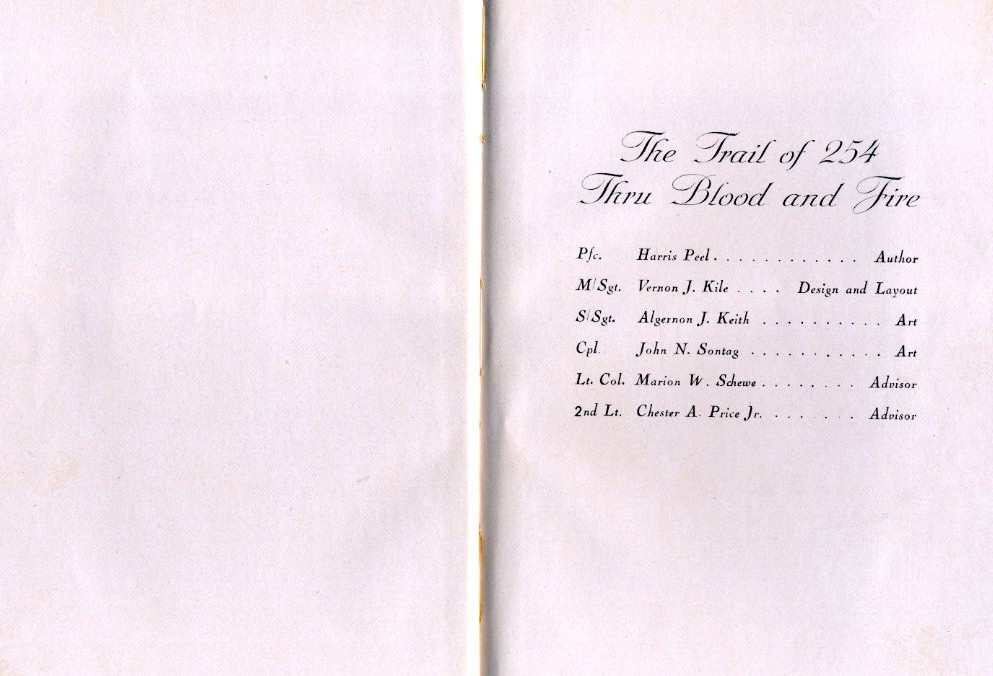 The Trail of 254
Thru Blood and Fire
Pfc. Harris Peel . . . . . . . . . . . . Author
M/Sgt. Vernon J. Kile . . . . Design and Layout
S/Sgt. Algernon J. Keith . . . . . . . . . . Art
Cpl. John N. Sontag . . . . . . . . . . . Art
Lt. Col. Marion W. Schewe . . . . . . . . Advisor
2nd Lt. Chester A. Price Jr. . . . . . . . Advisor